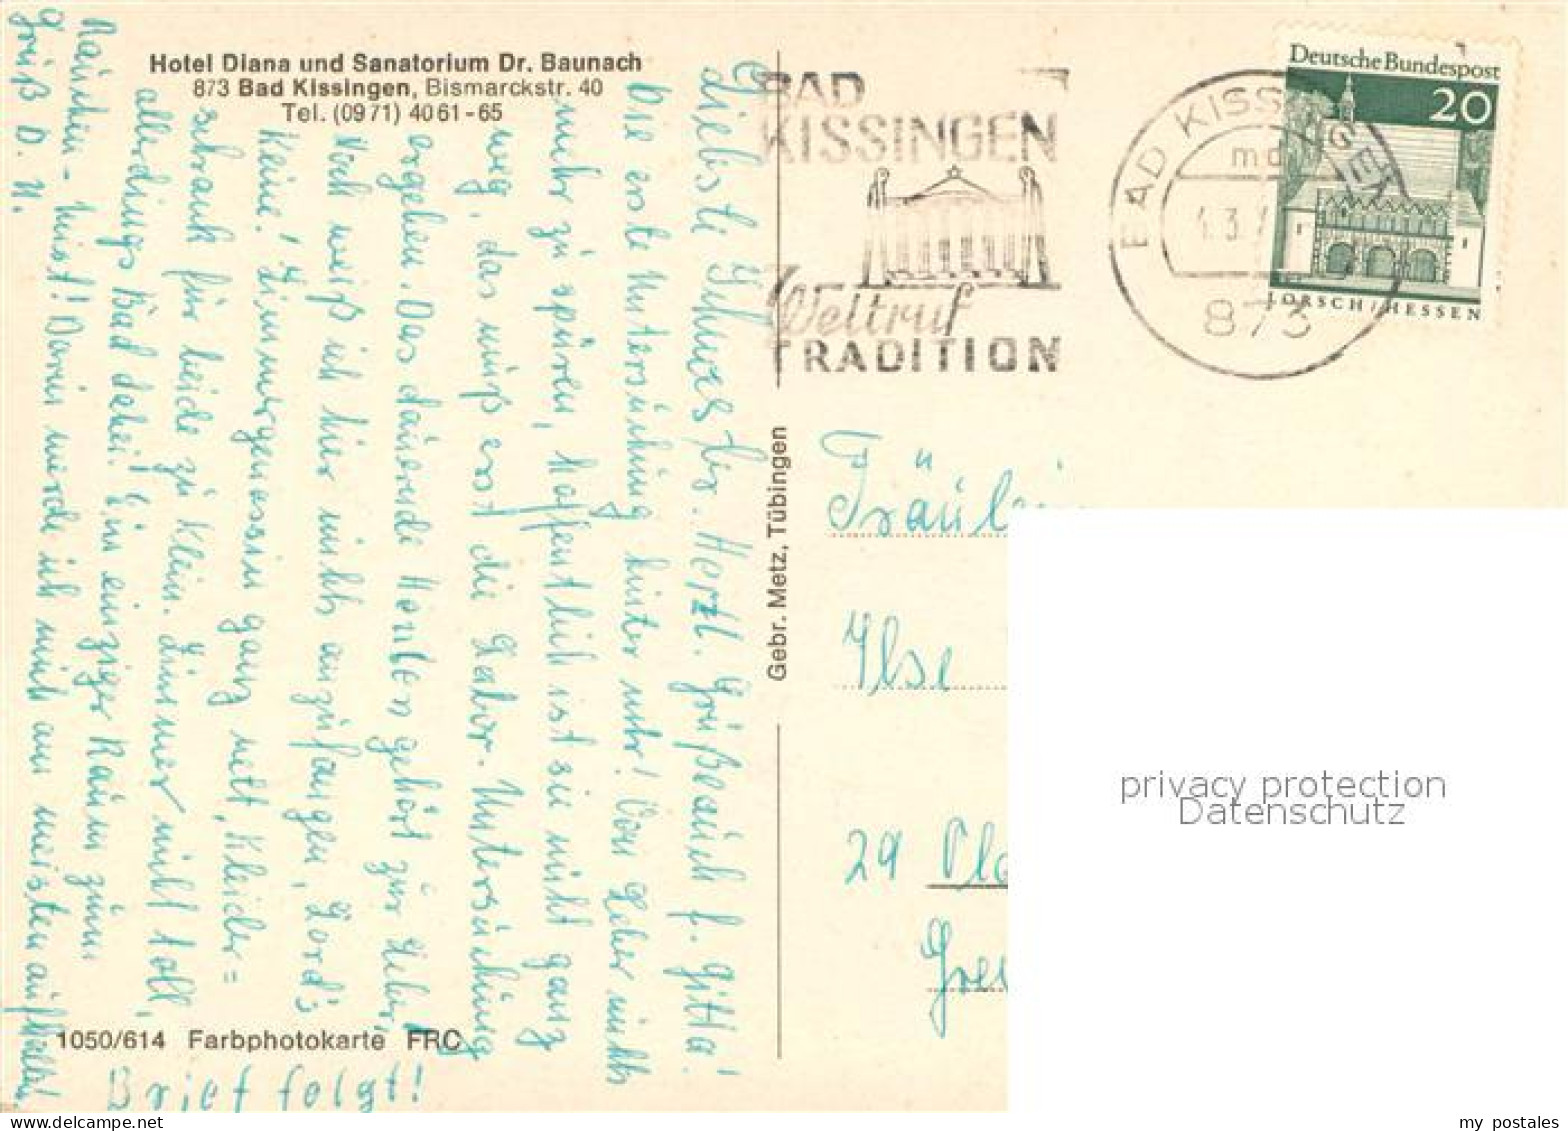 Hotel Diana und Sanatorium Dr. Baunach
873 Bad Kissingen, Bismarckstr. 40
Tel. (0971) 4061-65
Liebste Schwester. Herzl. Grüße auch f. Gitta!
Die erste Untersuchung hinter mir! Von Leber nichts
mehr zu spüren, hoffentlich ist sie nicht ganz
weg, das muß erst die Labor-Untersuchung
ergeben. Das dauernde gehört zur Leber,
Noch weiß ich hier nichts anzufangen, Lord's
Keine! Zimmergenossin ganz nett, Kleider=
schrank für beide zu klein. Zimmer nicht toll,
allerdings Bad dabei! Ein einziger Raum zum
Rauchen - Mist! Darin werde ich mich am meisten aufhalten!
Gruß D. U.
Brief folgt!
1050/614 Farbphotokarte FRC
Gebr. Metz, Tübingen
BAD
KISSINGEN
Weltruf
TRADITION
BAD KISSINGEN
873
Deutsche Bundespost
20
LORSCH/HESSEN
Fräulein
Ilse
29
privacy protection
Datenschutz
my postales